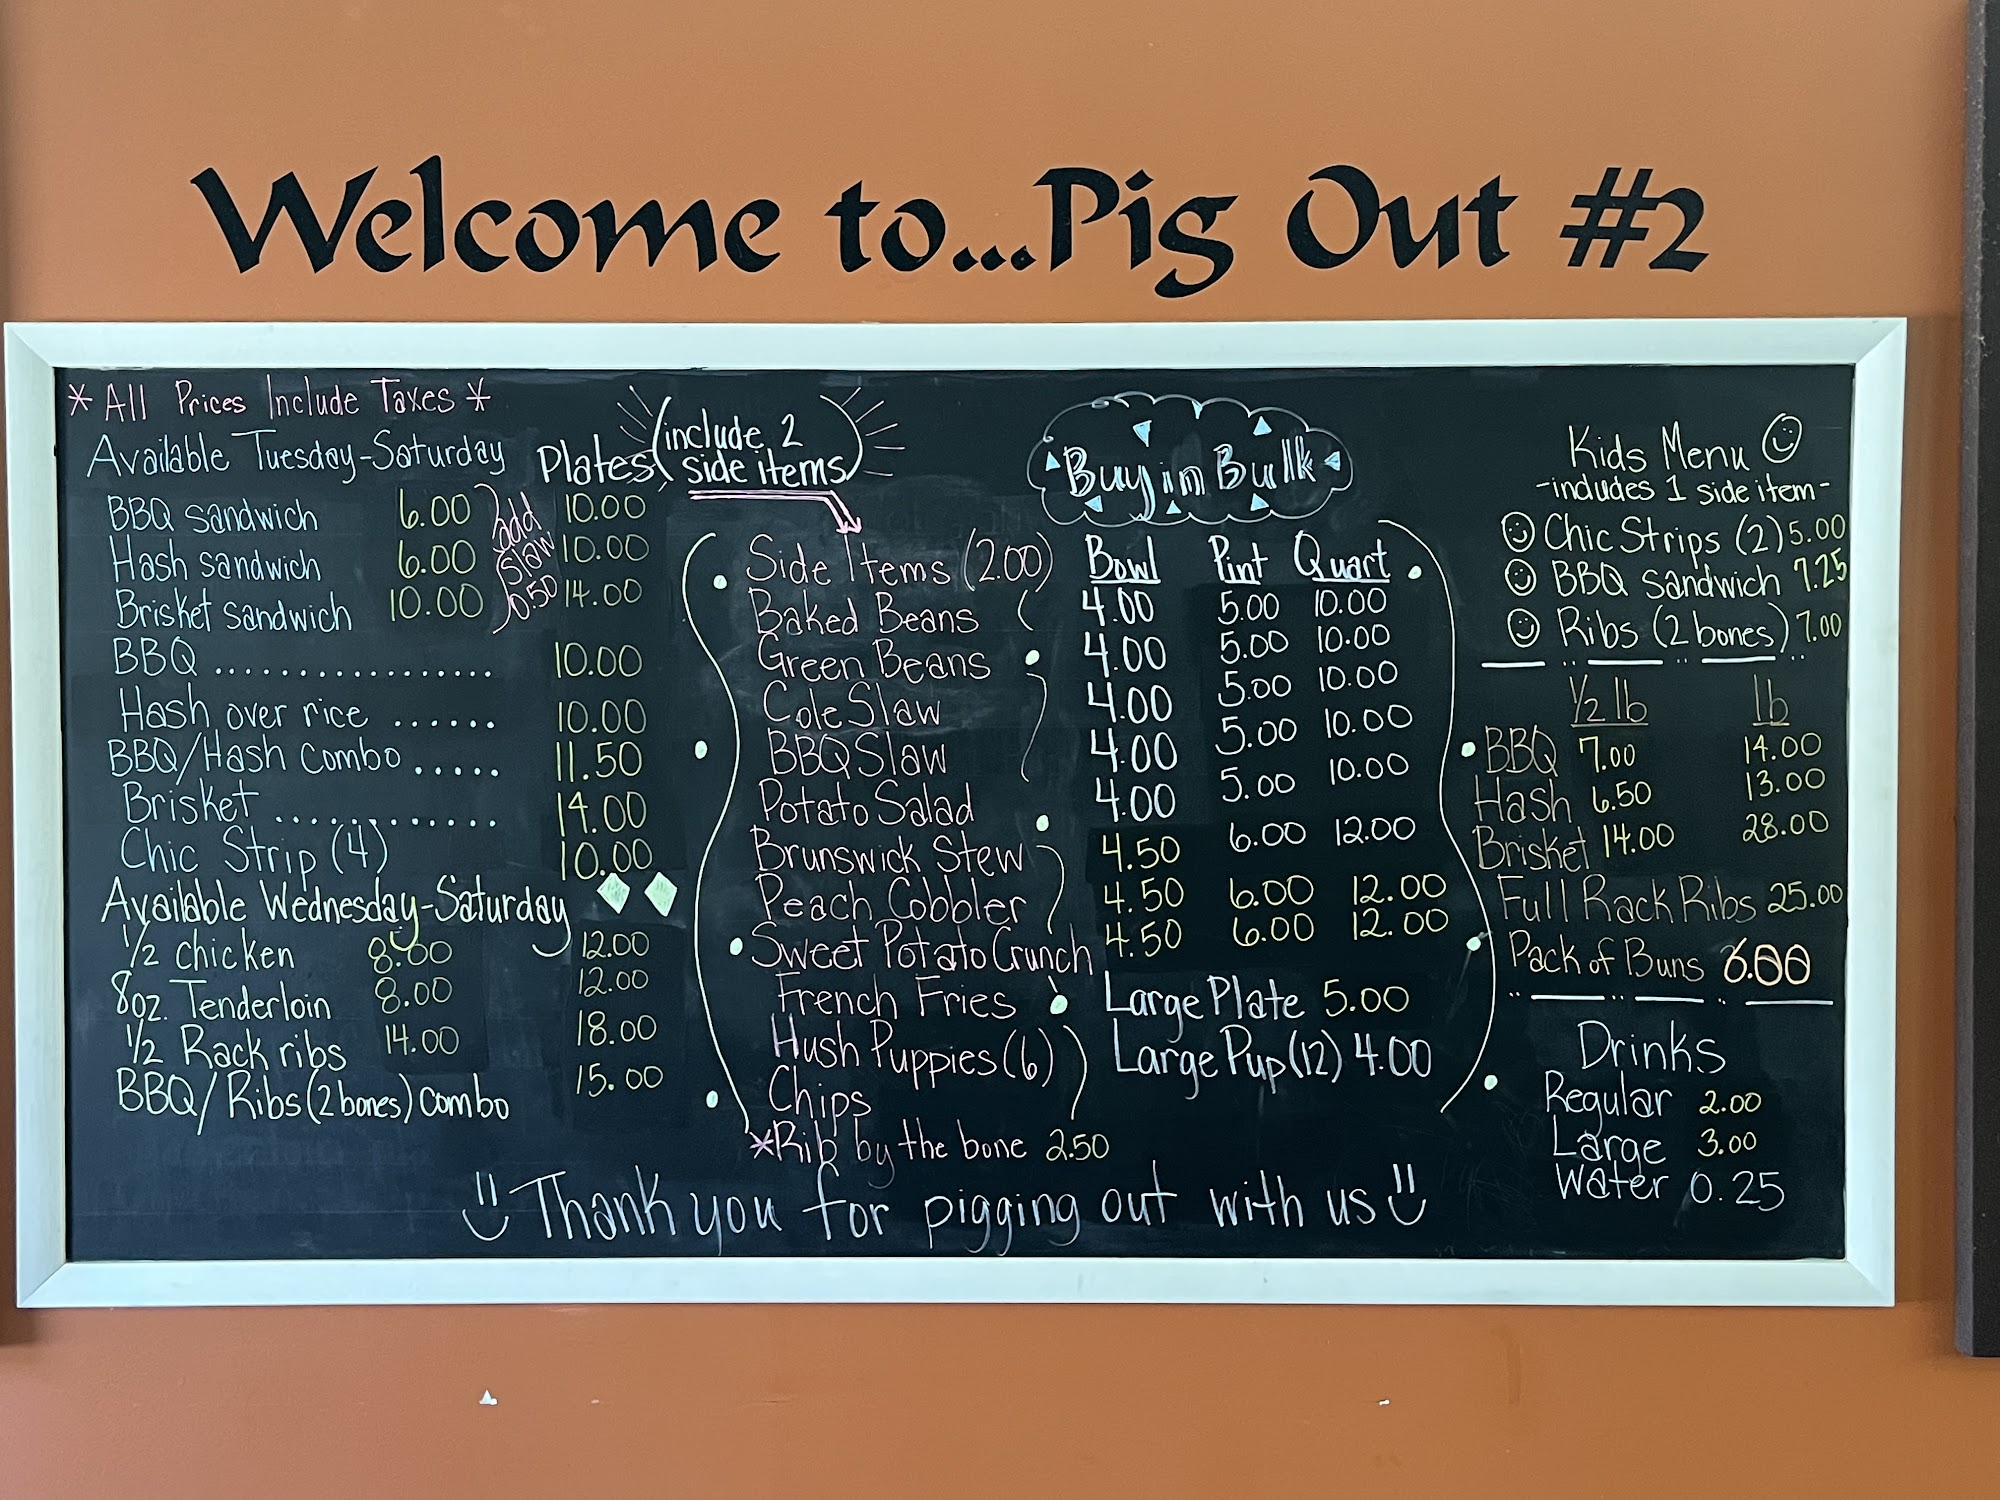 Welcome to...Pig Out #2
* All Prices Include Taxes *
Available Tuesday-Saturday
Plates (include 2 side items)
BBQ sandwich 6.00 10.00
Hash sandwich 6.00 10.00
Brisket sandwich 10.00 14.00
add slaw 0.50
BBQ ................. 10.00
Hash over rice ...... 10.00
BBQ/Hash Combo ..... 11.50
Brisket ............ 14.00
Chic Strip (4) 10.00
Available Wednesday-Saturday
1/2 chicken 8.00 12.00
8oz. Tenderloin 8.00 12.00
1/2 Rack ribs 14.00 18.00
BBQ/Ribs (2 bones) combo 15.00
Buy in Bulk
Side Items (2.00) Bowl Pint Quart
Baked Beans 4.00 5.00 10.00
Green Beans 4.00 5.00 10.00
Cole Slaw 4.00 5.00 10.00
BBQ Slaw 4.00 5.00 10.00
Potato Salad 4.00 5.00 10.00
Brunswick Stew 4.50 6.00 12.00
Peach Cobbler 4.50 6.00 12.00
Sweet Potato Crunch 4.50 6.00 12.00
French Fries Large Plate 5.00
Hush Puppies (6) Large Pup (12) 4.00
Chips
*Rib by the bone 2.50
Kids Menu
-includes 1 side item-
Chic Strips (2) 5.00
BBQ sandwich 7.25
Ribs (2 bones) 7.00
1/2 lb lb
BBQ 7.00 14.00
Hash 6.50 13.00
Brisket 14.00 28.00
Full Rack Ribs 25.00
Pack of Buns 6.00
Drinks
Regular 2.00
Large 3.00
Water 0.25
Thank you for pigging out with us